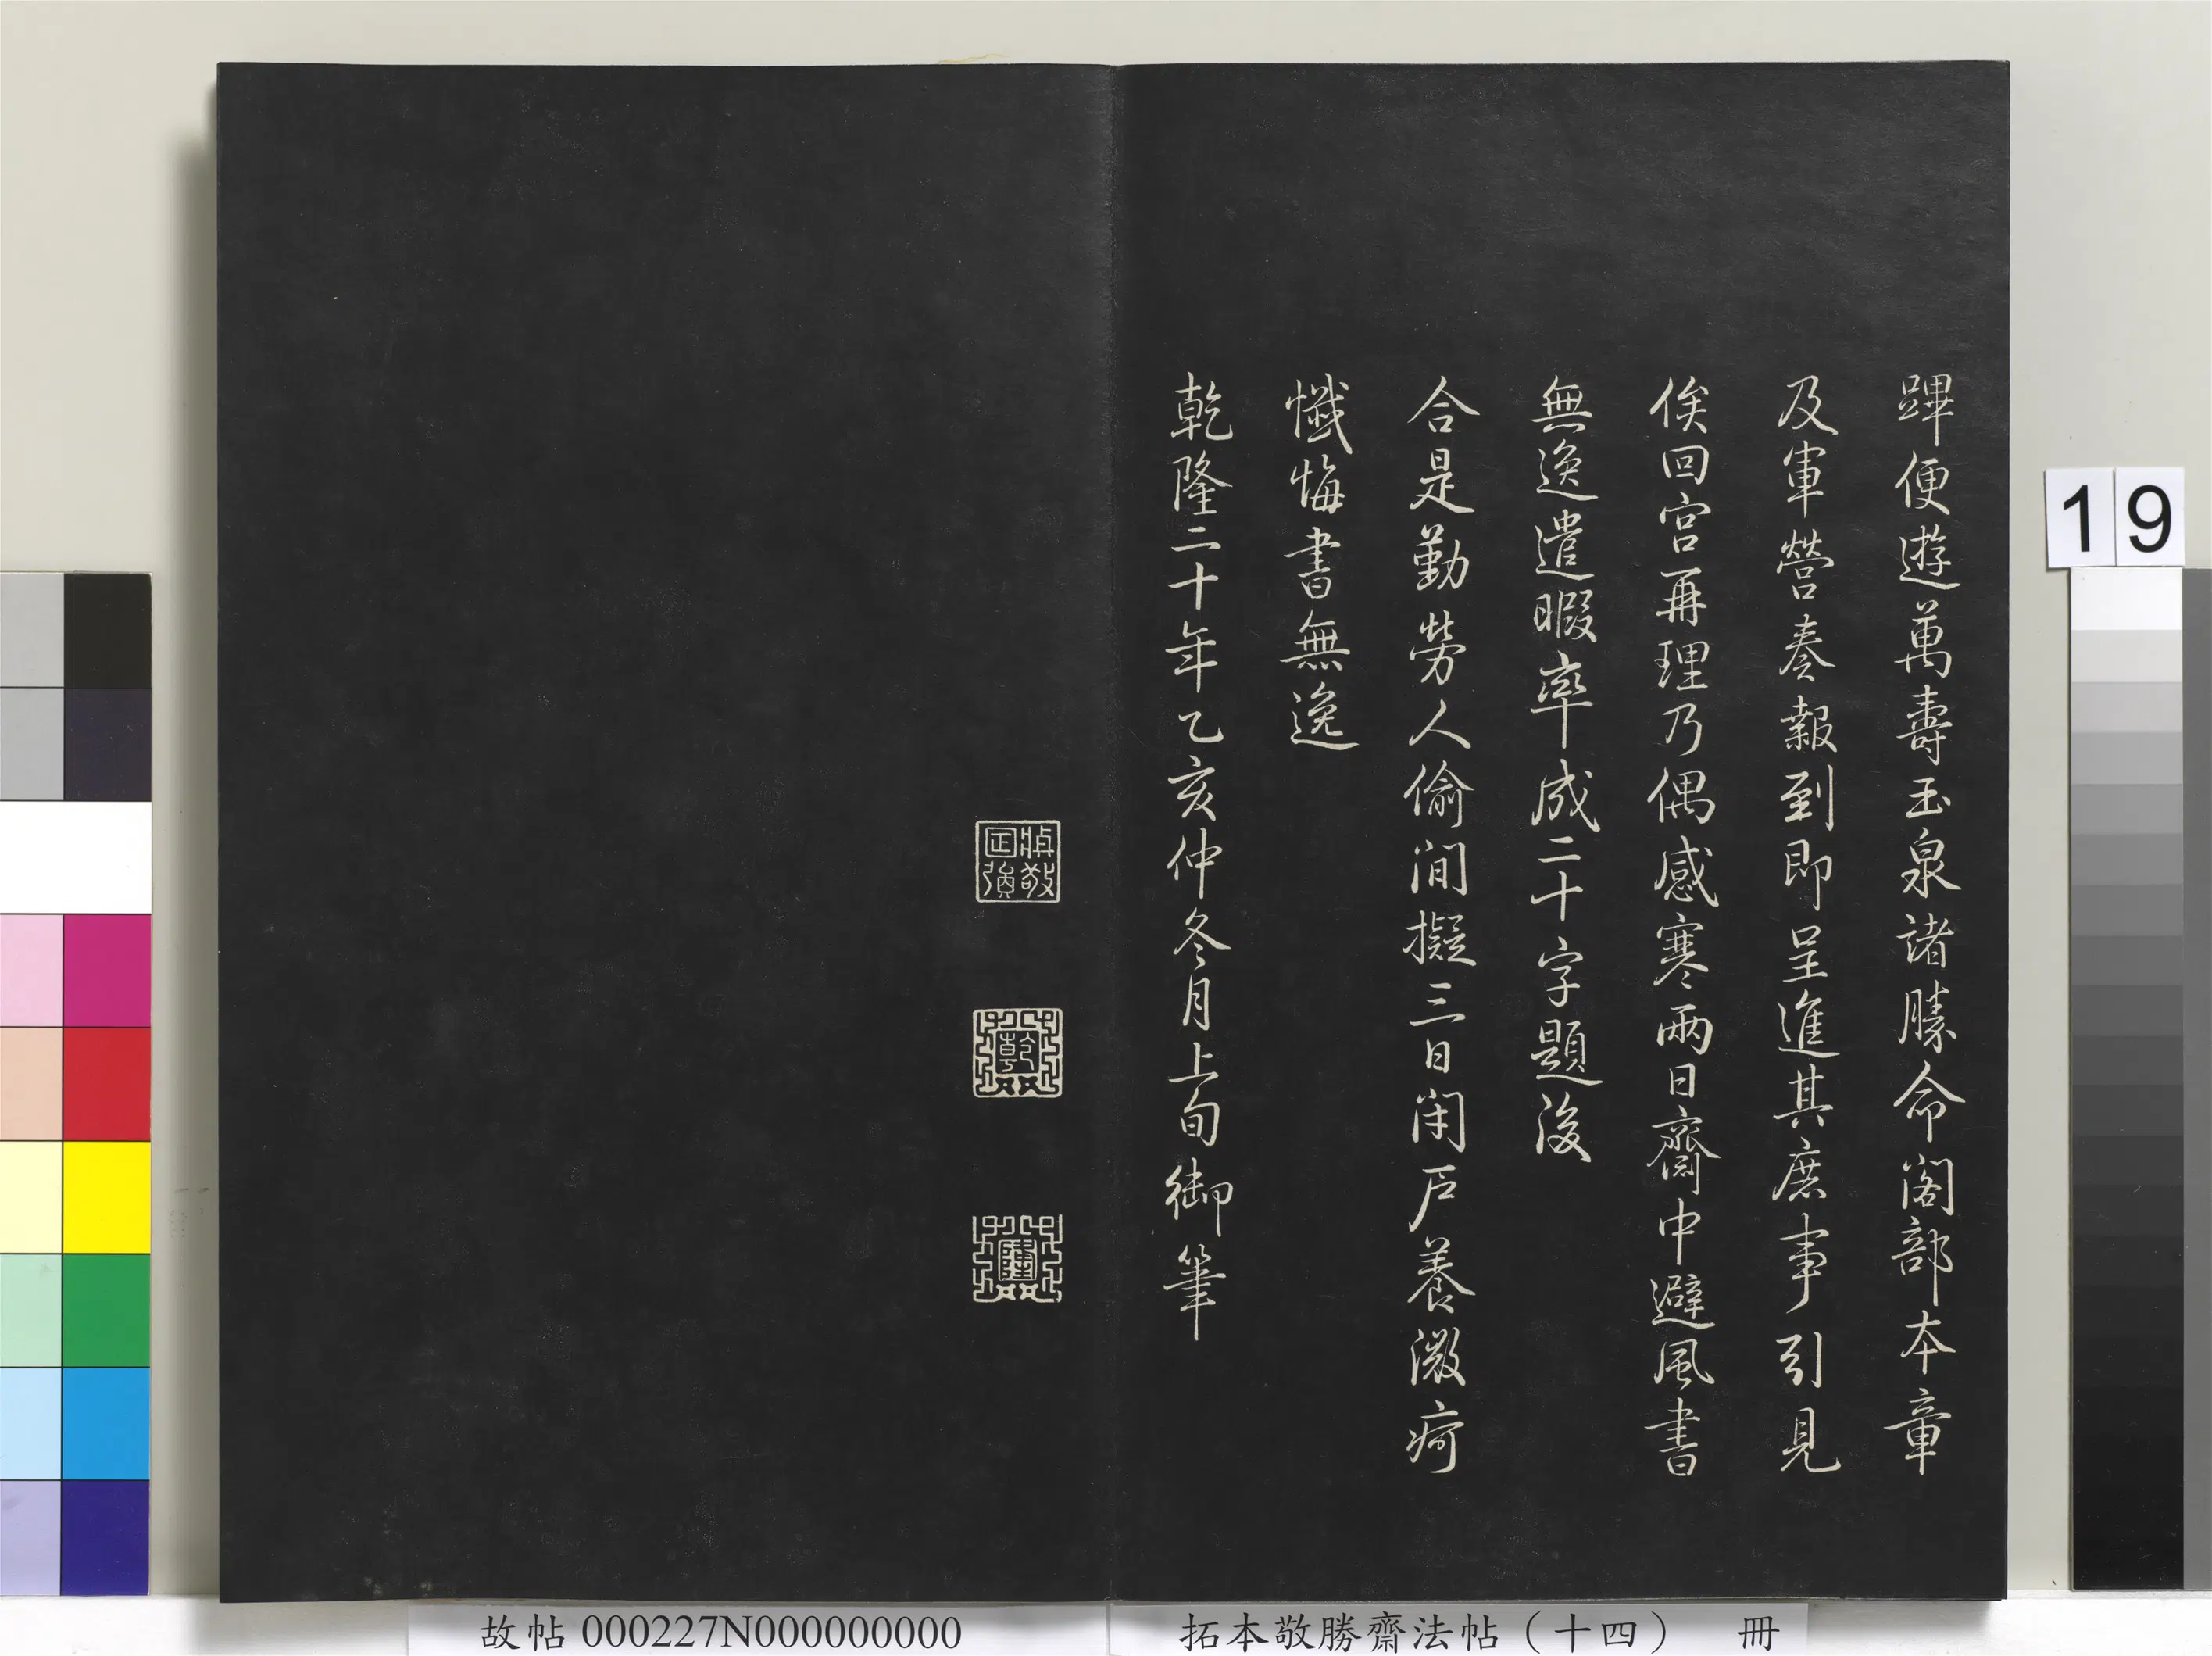 蹕便遊萬壽玉泉諸勝命閣部本章
及軍營奏報到即呈進其庶事引見
俟回宮再理乃偶感寒兩日齋中避風書
無逸遣暇率成二十字題後
合是勤勞人偷閒擬三日閉戶養微疴
懺悔書無逸
乾隆二十年乙亥仲冬月上旬御筆
乾
隆
19
故帖 000227N000000000
拓本敬勝齋法帖（十四） 冊